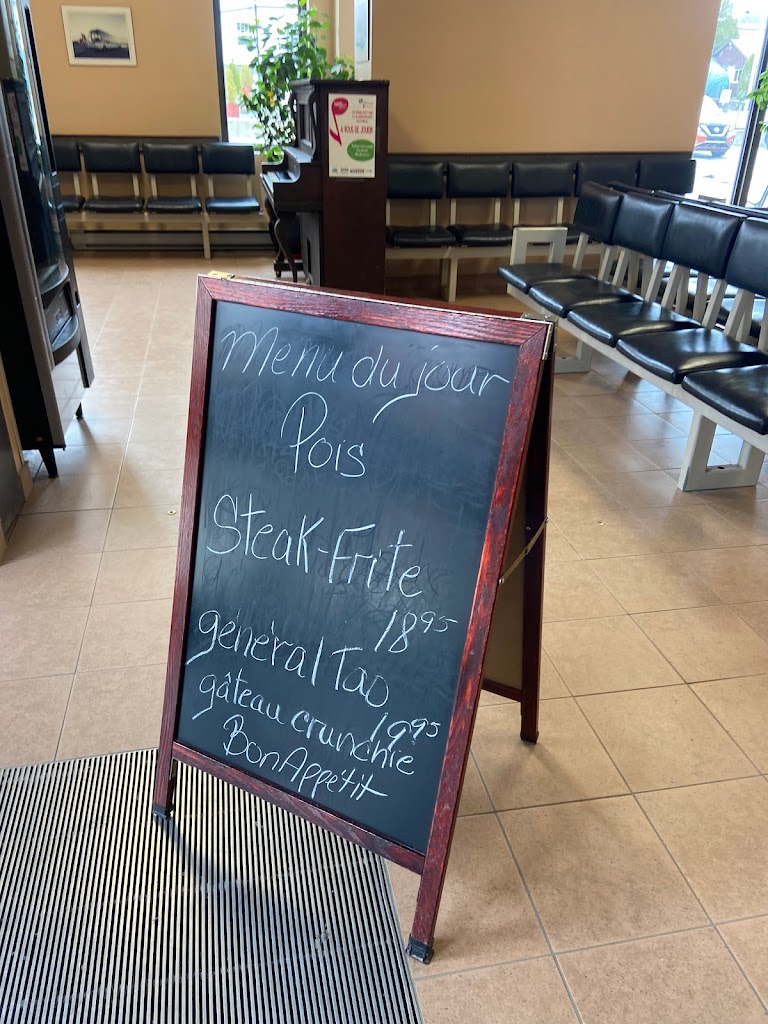 À VOUS DE JOUER!
Menu du jour
Pois
Steak-Frite
18 95
général Tao
19 95
gâteau crunchie
Bon Appétit